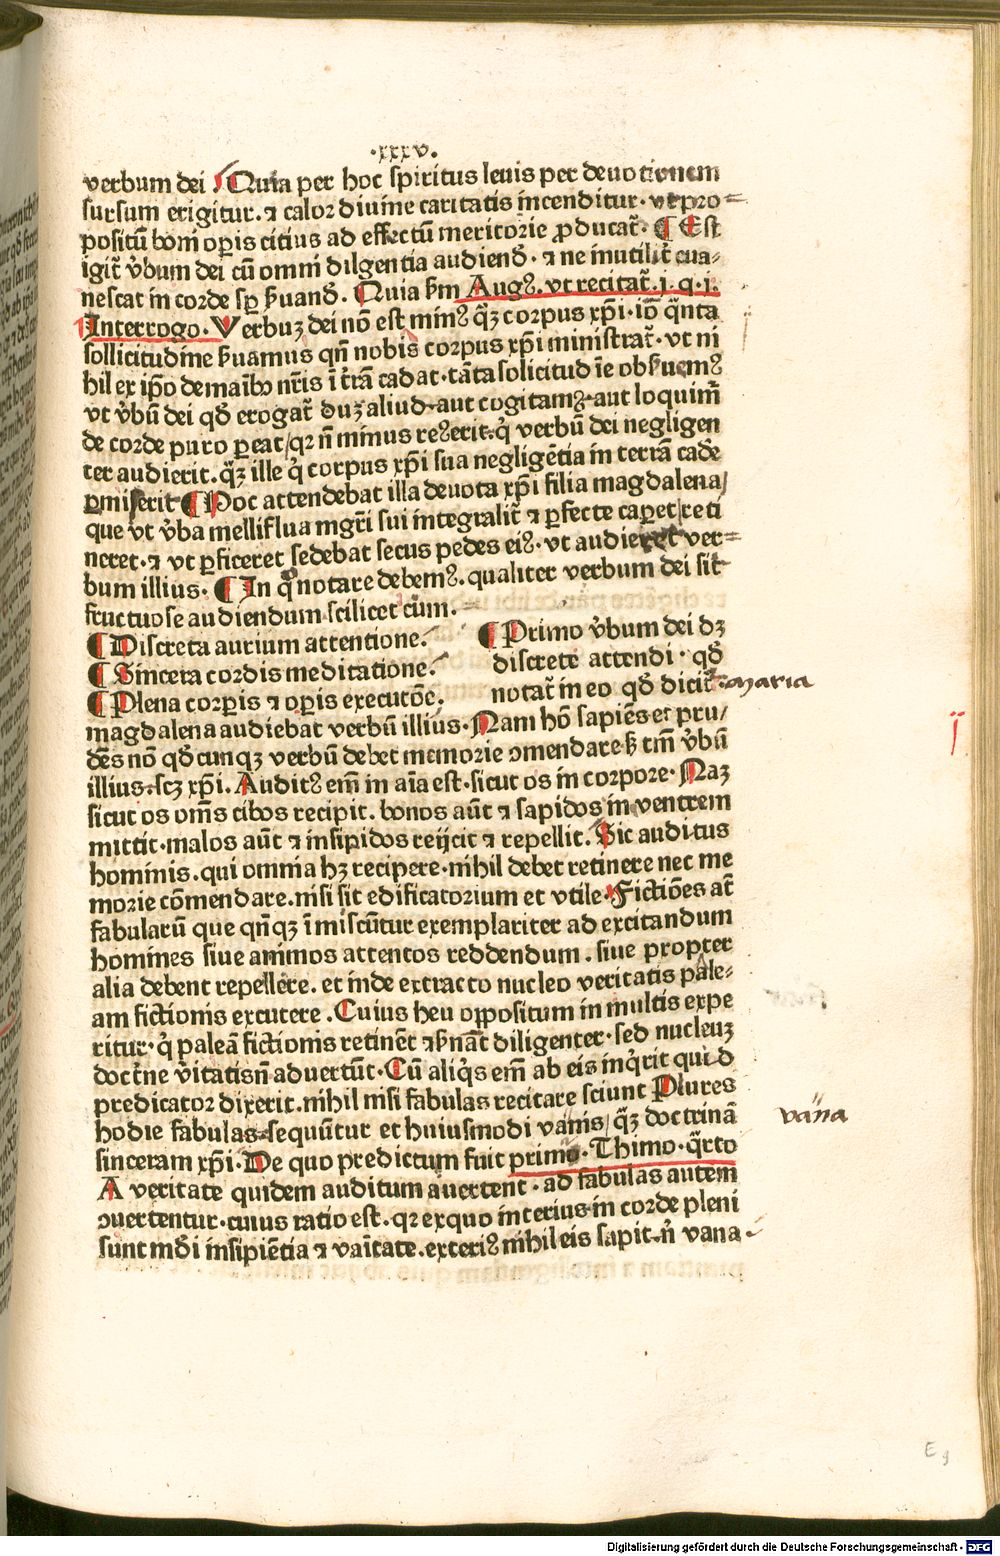 ·xxxv.
verbum dei Quia per hoc spiritus leuis per deuotionem
sursum erigitur. ⁊ calor diuine caritatis incenditur· vt pro⸗
positū boni operis citius ad effectū meritorie ꝓducat᷑· ¶ Est
igit᷑ v̄bum dei cū omni diligentia audiend̄· ⁊ ne inutilit᷑ eua⸗
nescat in corde sꝑ ẜuand̄. Quia ẜm Augꝰ. vt recitat᷑.i.q.i.
Interrogo. Verbuꝫ dei nō est minꝰ q̄ꝫ corpus xp̄i· iō q̄nta
sollicitudine ẜuamus qn̄ nobis corpus xp̄i ministrat᷑· vt ni
hil ex ip̄o demaībꝰ nr̄is ī t̄rā cadat· tāta solicitudīe obẜuemꝰ
vt v̄bū dei qd̄ erogat᷑ duꝫ aliud aut cogitamꝰ aut loquimr̄
de corde puro ꝑeat/ qꝛ n̄ minus reꝰ erit. q̇ verbū dei negligen
ter audierit. q̄ꝫ ille q̇ corpus xp̄i sua negligētia in terrā cade
ꝑmiserit ¶ Hoc attendebat illa deuota xp̄i filia magdalena/
que vt v̄ba melliflua mgr̄i sui integralit᷑ ⁊ ꝑfecte caꝑet/ reti
neret. ⁊ vt ꝑficeret sedebat secus pedes eiꝰ· vt audieret ver⸗
bum illius. ¶ In q̊ notare debemꝰ. qualiter verbum dei sit
fructuose audiendum scilicet cum.
¶ Discreta aurium attentione.
¶ Sincera cordis meditatione.
¶ Plena corꝑis ⁊ oꝑis executōe.
¶ Primo v̄bum dei dꝫ
discrete attendi· qd̄
notat᷑ in eo qd̄ dicit᷑· maria
magdalena audiebat verbū illius· Nam hō sapiēs et pru/
dēs nō qd̄cunqꝫ verbū debet memorie ↄmendare ẜꝫ tm̄ v̄bū
illius .scꝫ xp̄i. Auditꝰ em̄ in aīa est· sicut os in corpore· Naꝫ
sicut os om̄s cibos recipit. bonos aūt ⁊ sapidos in ventrem
mittit· malos aūt ⁊ insipidos reijcit ⁊ repellit. Sic auditus
hominis. qui omnia hꝫ recipere· nihil debet retinere nec me
morie cōmendare. nisi sit edificatorium et vtile· Fictiōes at᷑
fabularū que qn̄qꝫ īmiscūtur exemplariter ad excitandum
homines siue animos attentos reddendum . siue propter
alia debent repellere. et inde extracto nucleo veritatis pale⸗
am fictionis excutere . Cuius heu oppositum in multis expe
ritur· q̇ paleā fictionis retinēt ⁊ ẜuāt diligenter· sed nucleuꝫ
doct̄ne v̄itatis n̄ aduertūt· Cū aliq̇s em̄ ab eis inq̇rit quid
predicator dixerit. nihil nisi fabulas recitare sciunt Plures
hodie fabulas sequūtur et huiusmodi vanis/ q̄ꝫ doctrinā
sinceram xp̄i· De quo predictum fuit primo· Thimo· q̈rto
A veritate quidem auditum auertent · ad fabulas autem
ↄuertentur· cuius ratio est. qꝛ exquo interius in corde pleni
sunt mūdi insipiētia ⁊ vaītate. exteriꝰ nihil eis sapit n̄ vana
vana
E 9
Digitalisierung gefördert durch die Deutsche Forschungsgemeinschaft - DFG